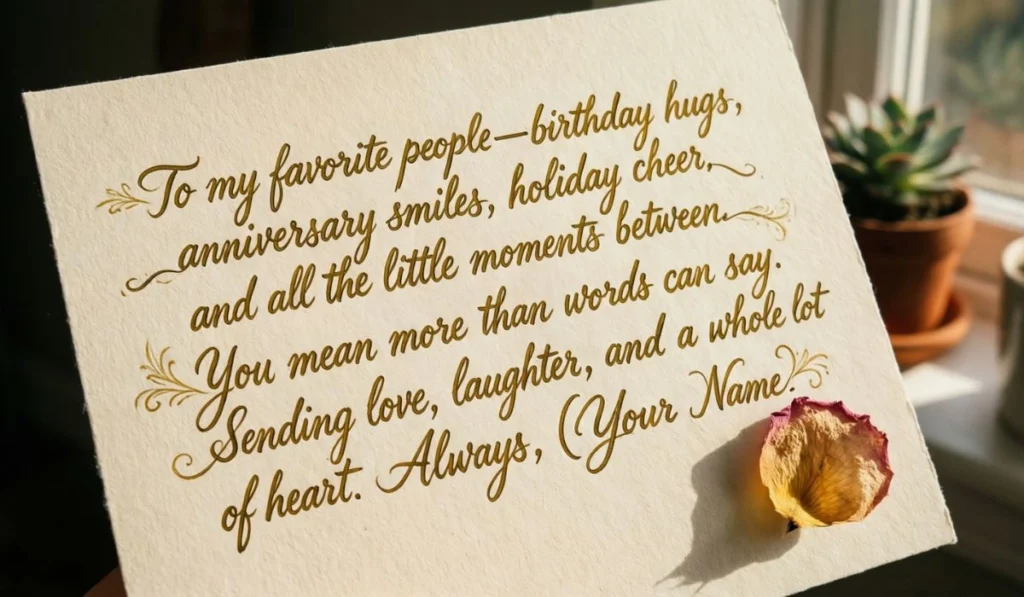 To my favorite people—birthday hugs,
anniversary smiles, holiday cheer,
and all the little moments between.
You mean more than words can say.
Sending love, laughter, and a whole lot
of heart. Always, (Your Name.